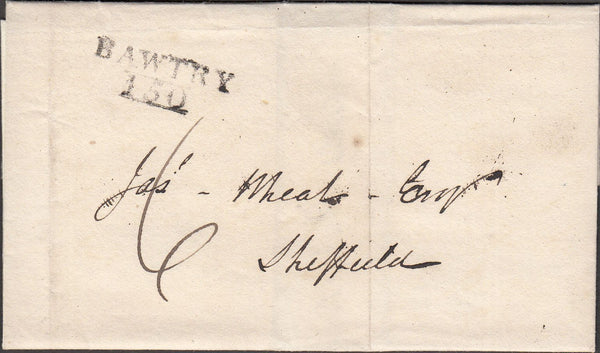 BAWTRY
150
6
Jas' - Wheat - Esqr
Sheffield